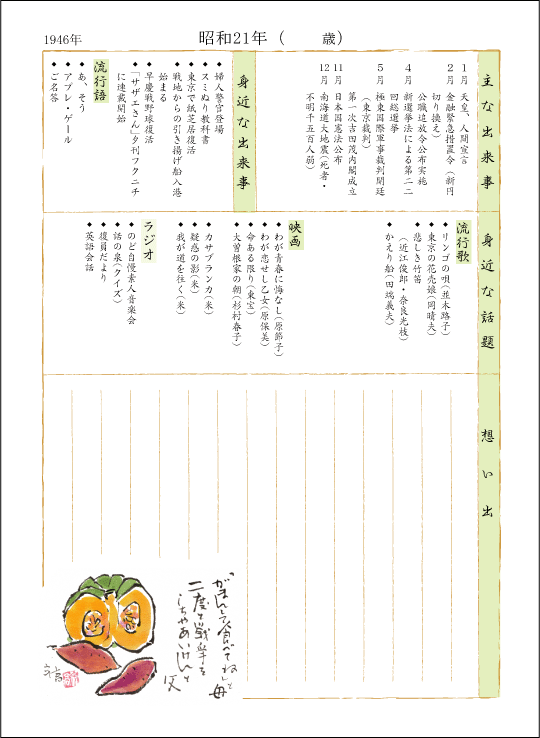 1946年
昭和21年（　　歳）
主な出来事
1月 天皇、人間宣言
2月 金融緊急措置令（新円
切り換え）
公職追放令公布実施
4月 新選挙法による第二二
回総選挙
5月 極東国際軍事裁判開廷
（東京裁判）
第一次吉田茂内閣成立
11月 日本国憲法公布
12月 南海道大地震（死者・
不明千五百人弱）
身近な出来事
◆ 婦人警官登場
◆ スミぬり教科書
◆ 東京で紙芝居復活
◆ 戦地からの引き揚げ船入港
始まる
◆ 早慶戦野球復活
◆ 「サザエさん」夕刊フクニチ
に連載開始
流行語
◆ あ、そう
◆ アプレ・ゲール
◆ ご名答
身近な話題
流行歌
◆ リンゴの唄（並木路子）
◆ 東京の花売娘（岡晴夫）
◆ 悲しき竹笛
（近江俊郎・奈良光枝）
◆ かえり船（田端義夫）
映画
◆ わが青春に悔なし（原節子）
◆ わが恋せし乙女（原保美）
◆ 命ある限り（東宝）
◆ 大曽根家の朝（杉村春子）
◆ カサブランカ（米）
◆ 疑惑の影（米）
◆ 我が道を往く（米）
ラジオ
◆ のど自慢素人音楽会
◆ 話の泉（クイズ）
◆ 復員だより
◆ 英語会話
想い出
「がまんして食べてね」と 母
二度と戦争を
しちゃあいけんと 父